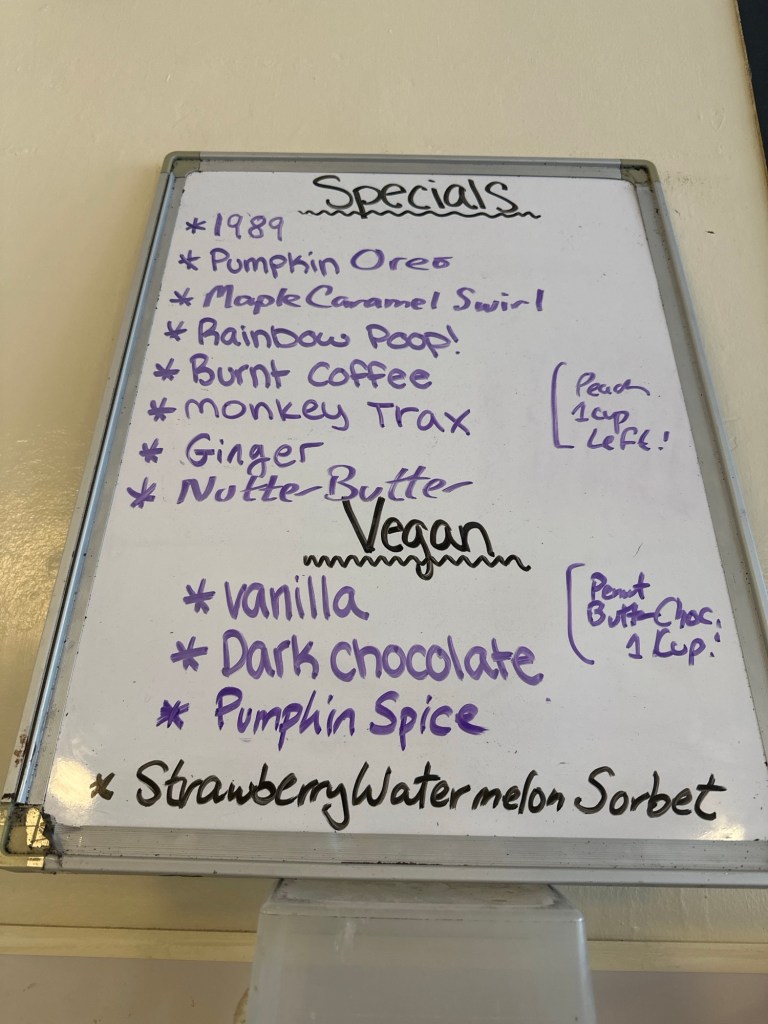 Specials
* 1989
* Pumpkin Oreo
* Maple Caramel Swirl
* Rainbow Poop!
* Burnt Coffee
* Monkey Trax
* Ginger
* Nutter Butter
Peach
1 cup
Left!
Vegan
* Vanilla
* Dark Chocolate
* Pumpkin Spice
Penut
Butter Choc.
1 Cup!
* Strawberry Watermelon Sorbet